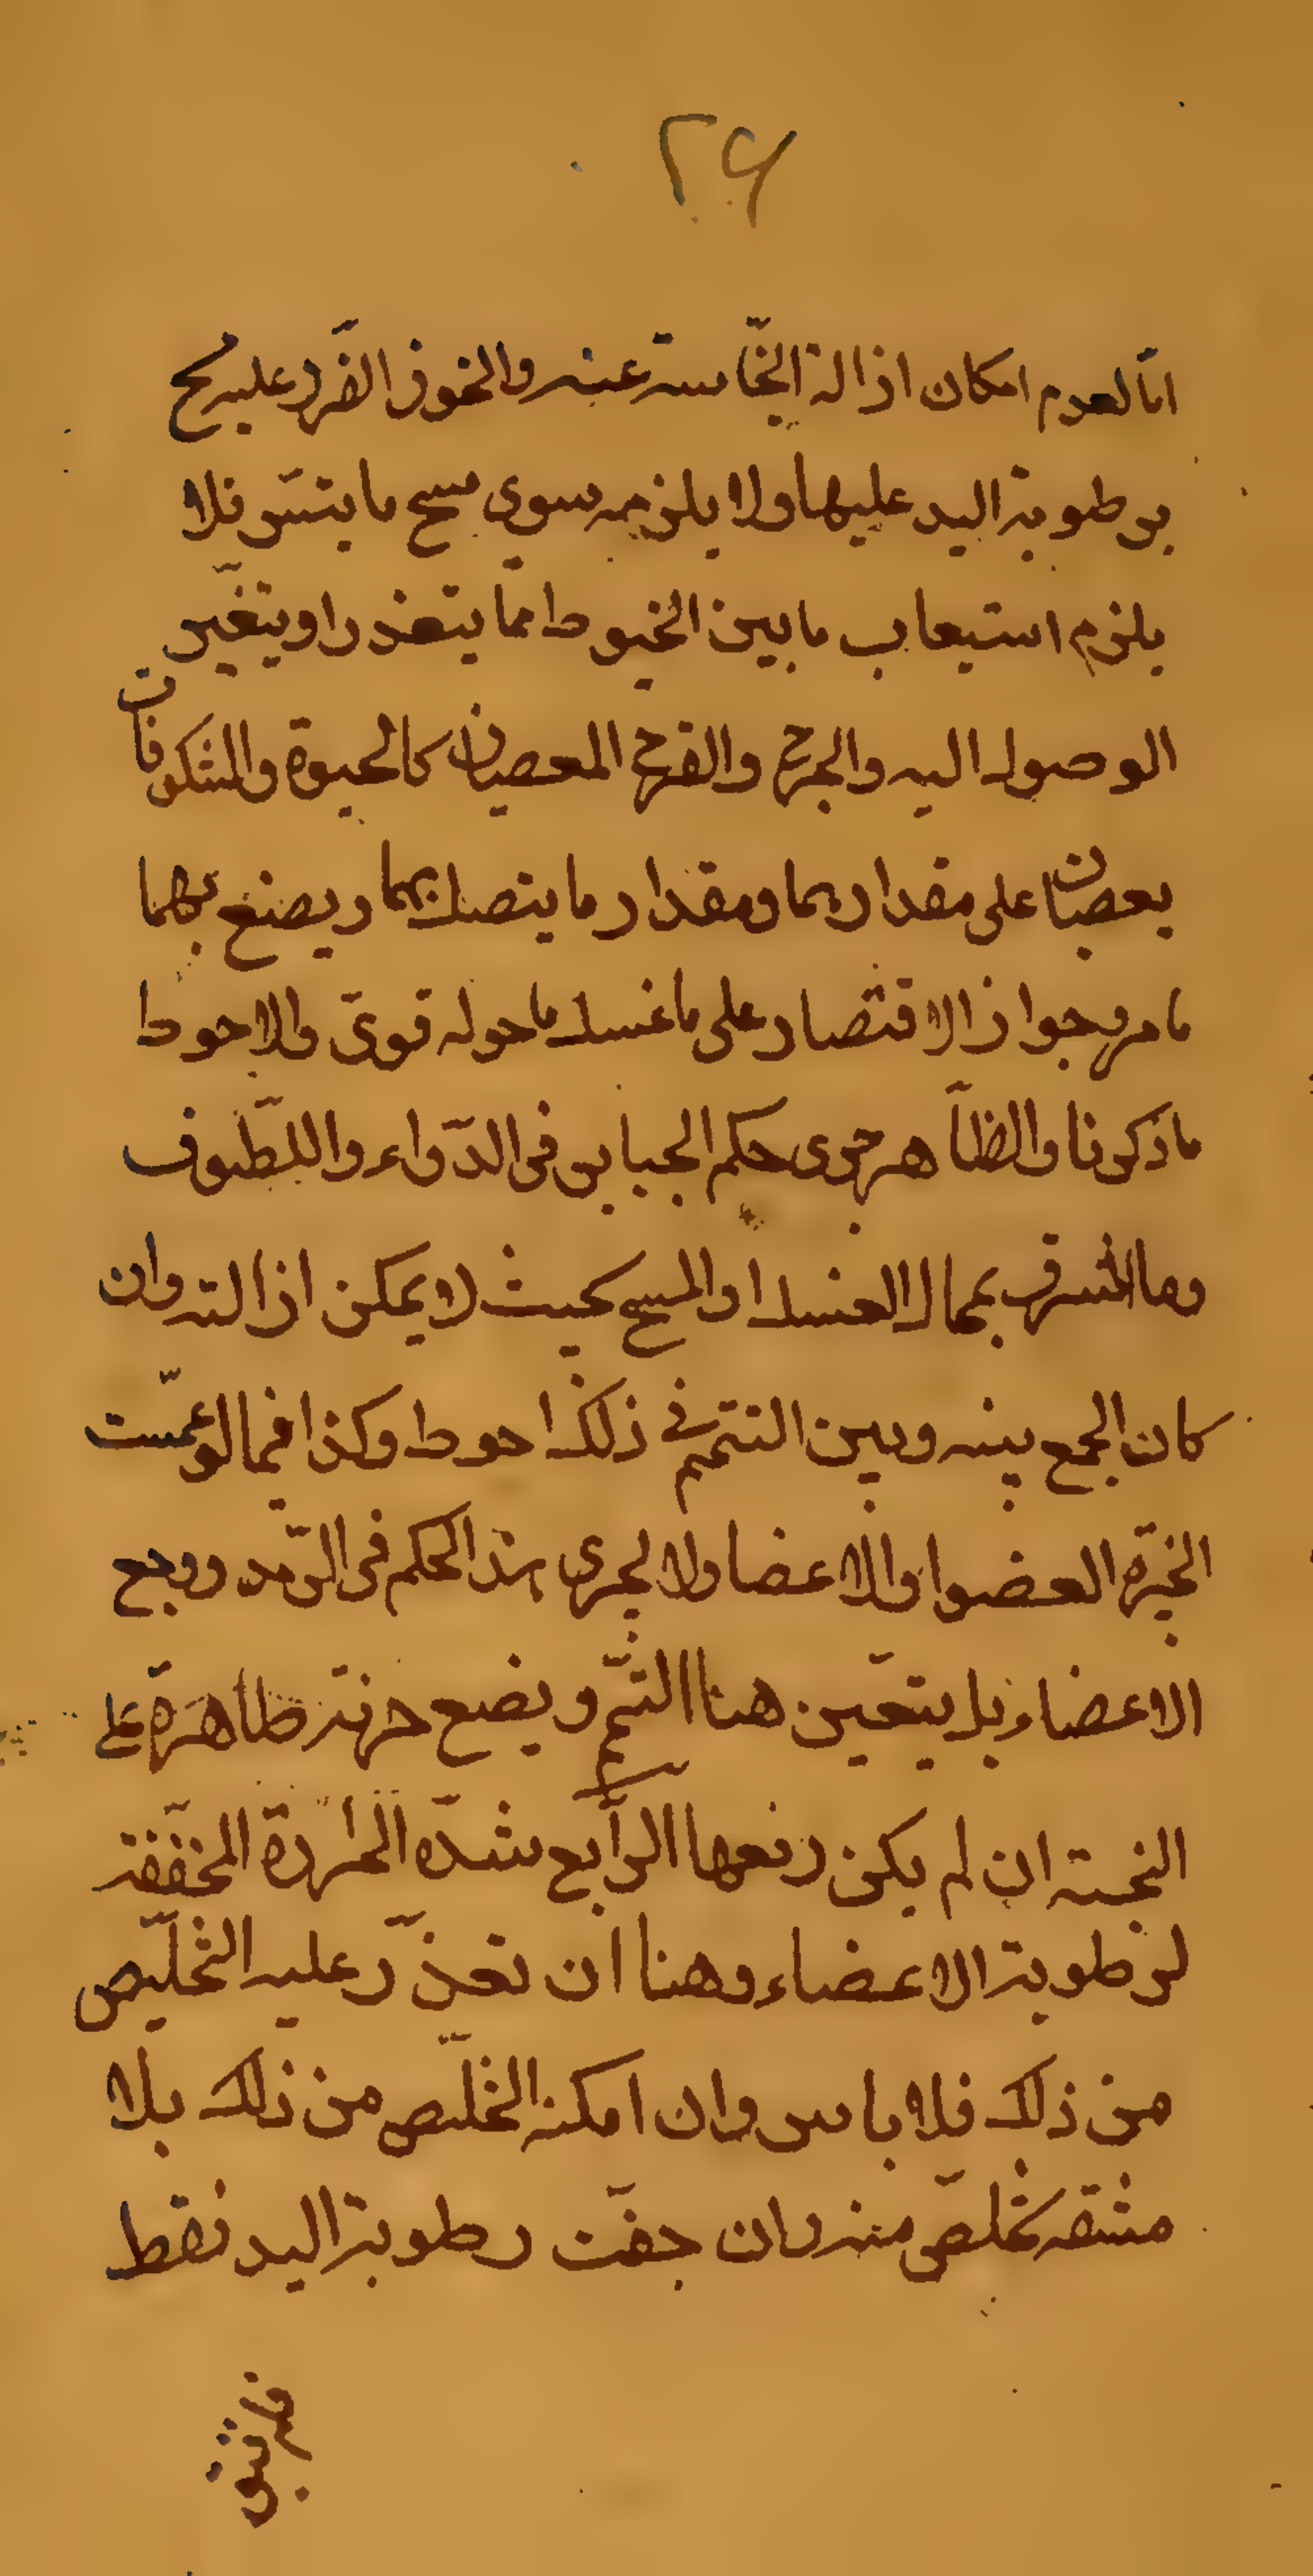 ٢٩
اما لعدم امكان ازالة النجاسة عنه والخوف الضرر عليه مسح
برطوبة اليد عليها ولا يلزمه سوى مسح ما يتيسر فلا
يلزم استيعاب ما بين الخيوط مما يتعذر او يتعسر
الوصول اليه والجرح والقرح المعصبان كالجبيرة والمكشوفان
يعصبان على مقدارهما ومقدار ما يتصل بهما ويصنع بهما
ما مر وجواز الاقتصار على ما غسل ما حوله قوى والاحوط
ما ذكرنا والظاهر جرى حكم الجباير فى الدواء واللطوف
وما اشرف بمحال الغسل او المسح بحيث لا يمكن ازالته وان
كان الجمع بينه وبين التيمم فى ذلك احوط وكذا فيما لو عمت
الجبيرة العضو او الاعضا ولا يجرى هذا الحكم فى الرمد ووجع
الاعضاء بل يتعين هنا التيمم ويضع خرقة طاهرة على
النجسة ان لم يكن رفعها الرابع شدة الحرارة المجففة
لرطوبة الاعضاء وهنا ان تعذر عليه التخليص
من ذلك فلا باس وان امكنه التخليص من ذلك بلا
مشقه تخلص منه وان جفت رطوبة اليد فقط